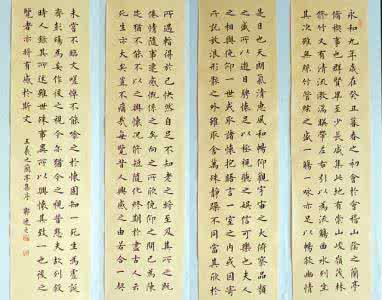 永和九年歲在癸丑暮春之初會于會稽山陰之蘭亭
脩稧事也群賢畢至少長咸集此地有崇山峻嶺茂林
脩竹又有清流激湍暎帶左右引以為流觴曲水列坐
其次雖無絲竹管絃之盛一觴一詠亦足以暢敘幽情
是日也天朗氣清惠風和暢仰觀宇宙之大俯察品類
之盛所以遊目騁懷足以極視聽之娛信可樂也夫人
之相與俯仰一世或取諸懷抱悟言一室之內或因寄
所託放浪形骸之外雖取舍萬殊靜躁不同當其欣於
所遇暫得於己快然自足不知老之將至及其所之既
惓情隨事遷感慨係之矣向之所欣俯仰之間已為陳
迹猶不能不以之興懷況脩短隨化終期於盡古人云
死生亦大矣豈不痛哉每覽昔人興感之由若合一契
未嘗不臨文嗟悼不能喻之於懷固知一死生為虛誕
齊彭殤為妄作後之視今亦猶今之視昔悲夫故列敘
時人錄其所述雖世殊事異所以興懷其致一也後之
覽者亦將有感於斯文
王羲之蘭亭集序